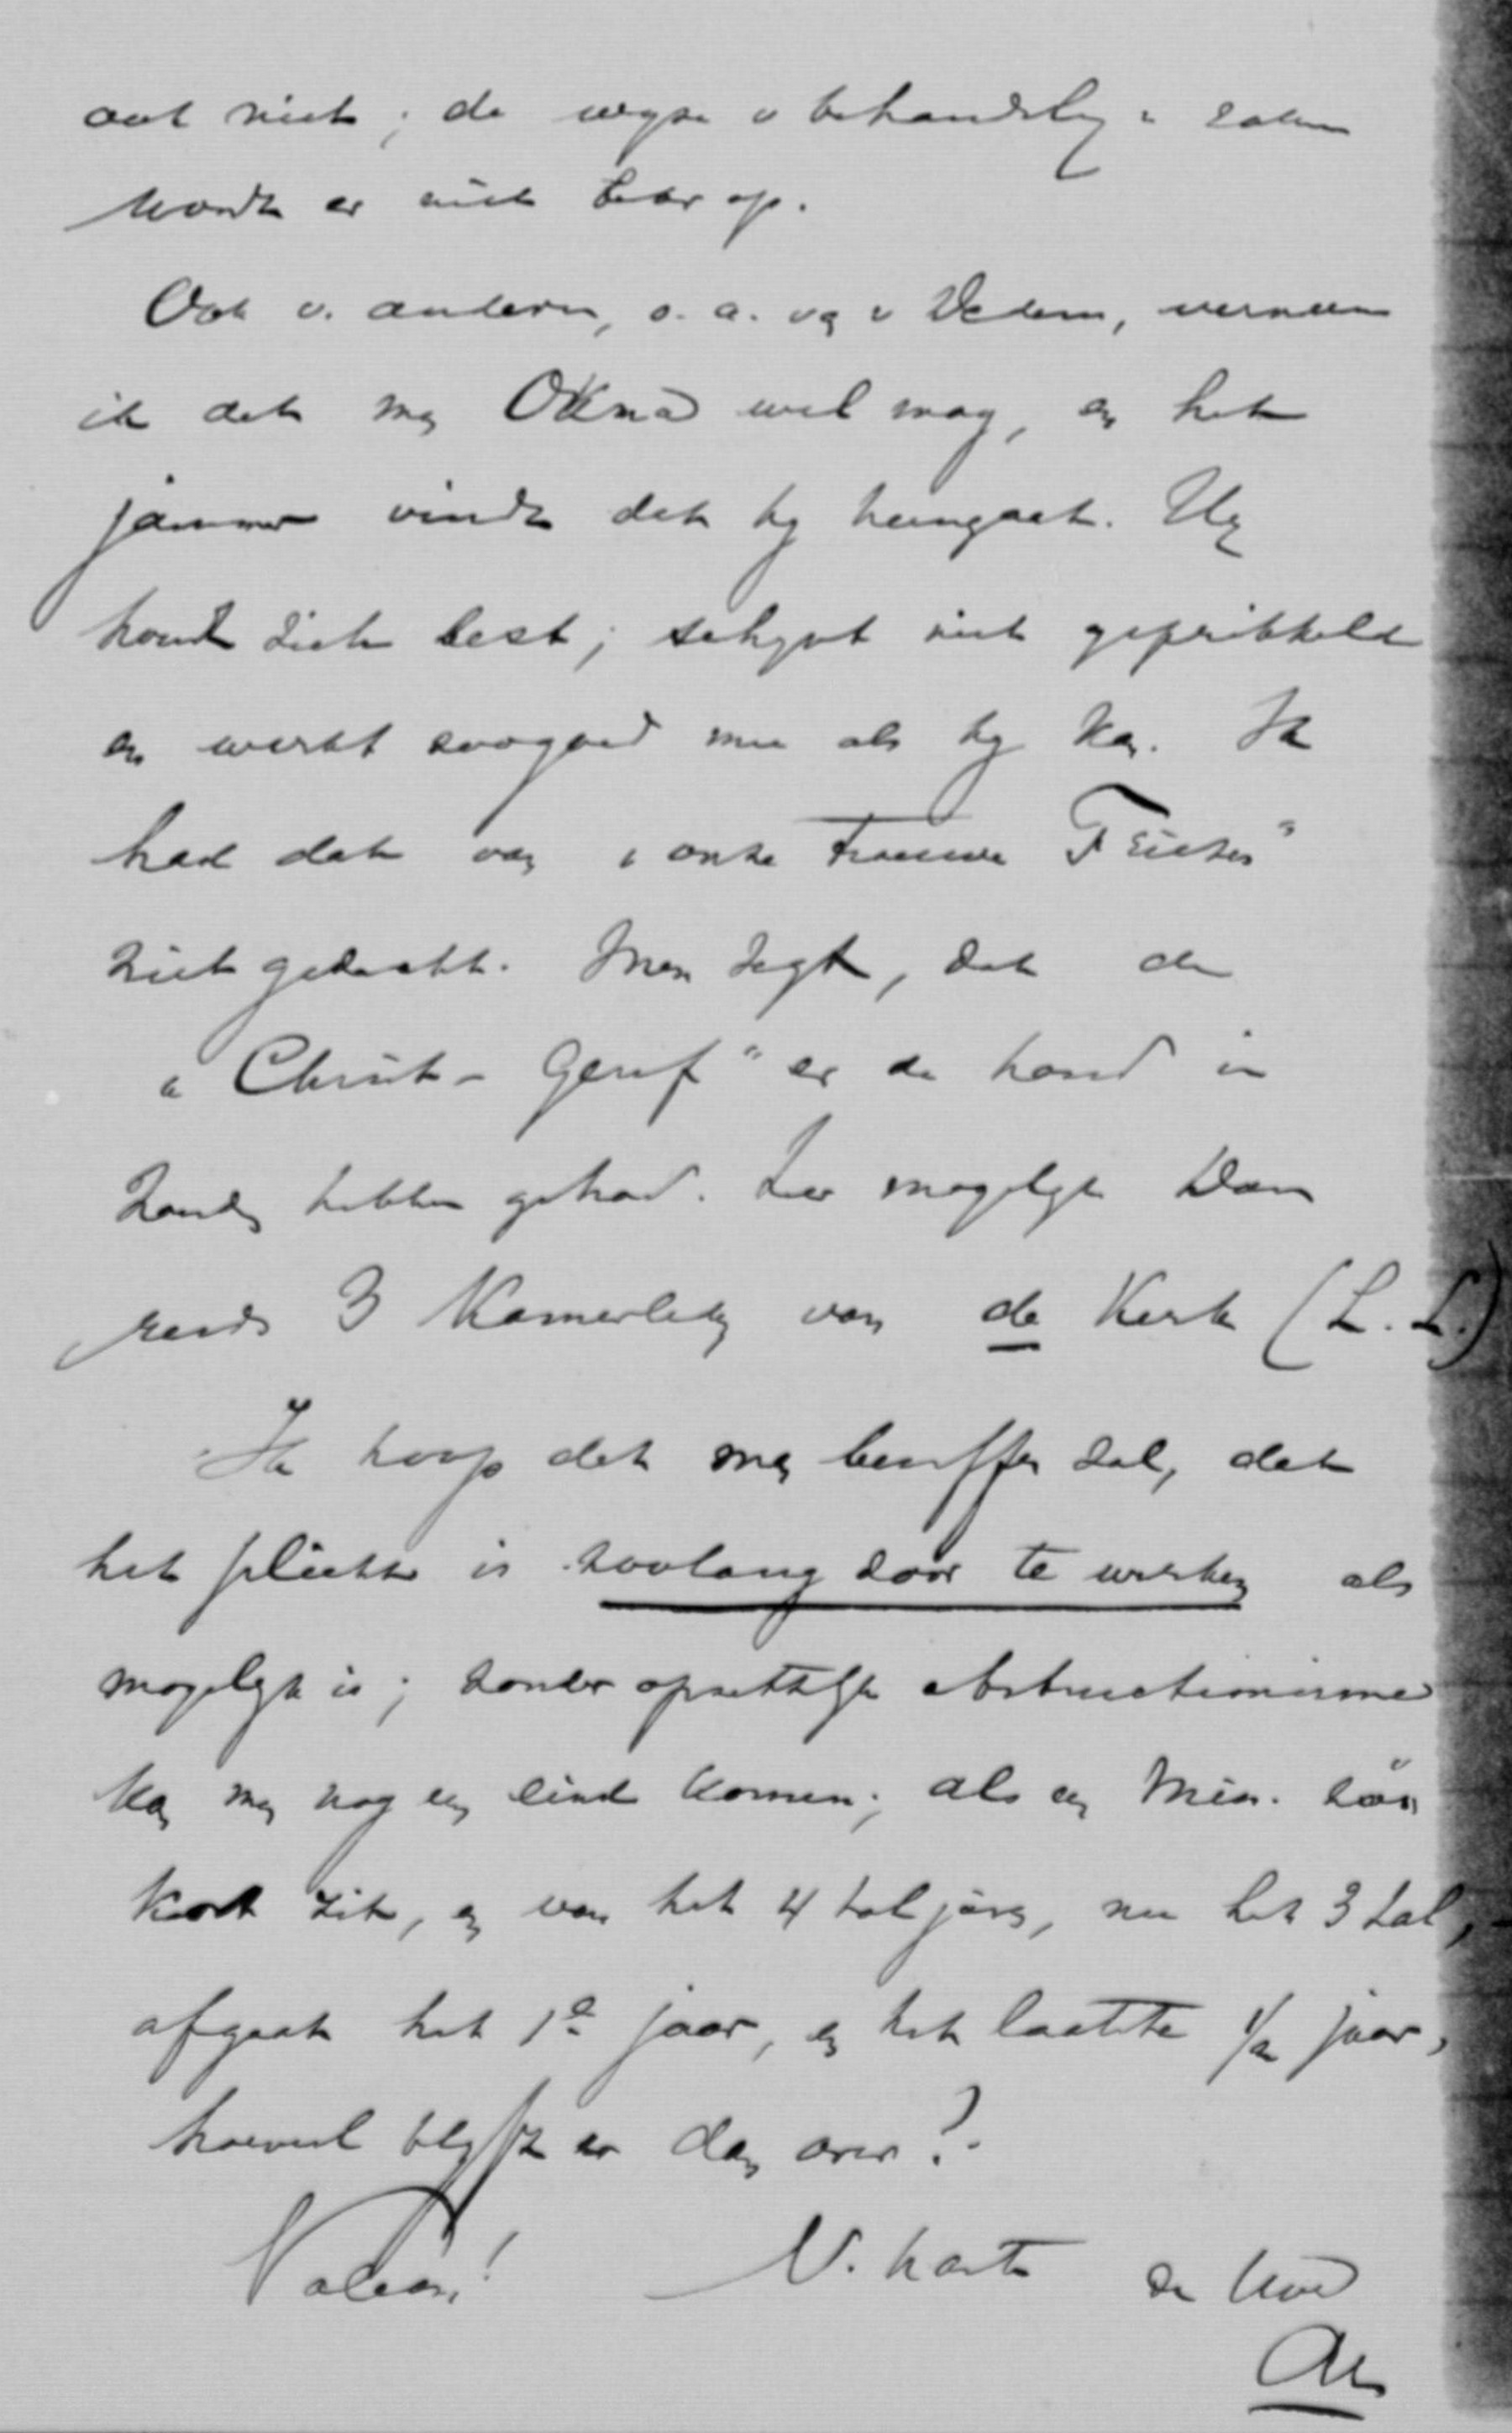 ook niet; de wyze v behandeling v zaken
wordt er niet beter op.
Ook v. anderen, o.a. v Vedem, verneem
ik dat men Okma wel mag, en het
jammer vindt dat hy heengaat. Hy
houdt zich best; schynt niet geprikkeld
en werkt zoogoed mee als hy kan. Ik
had dat van "onze Friesen"
niet gedacht. Men zegt, dat de
"Christ-Geref" er de hand in
zouden hebben gehad. Zeer mogelyk. Dan
reeds 3 Kamerleden van de Kerk (L. L.)
Ik hoop dat men beseffen zal, dat
het plicht is zoolang door te werken als
mogelyk is; zonder opzettelyk obstructionisme
kan men nog een eind komen; als een Min. zóó
kort zit, en van het 4 tal jaren, nu het 3 tal,
afgaat het 1e jaar, en het laatste 1/2 jaar,
hoeveel blyft er dan over?
Valeas! V. harte de Uwe